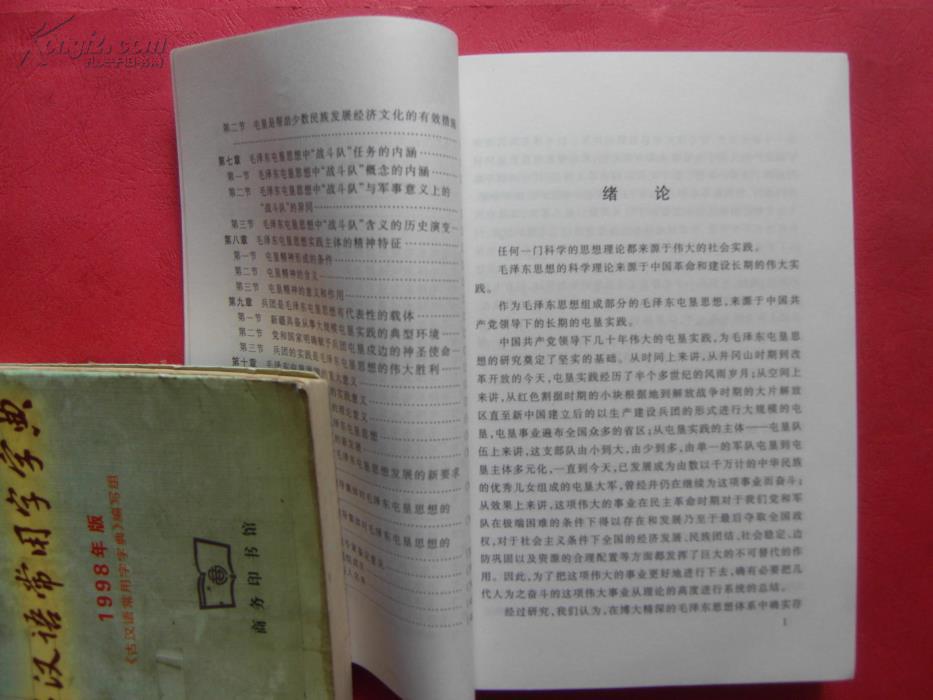 Kongfz.com
孔夫子旧书网
第二节 屯垦是帮助少数民族发展经济文化的有效措施
第七章 毛泽东屯垦思想中“战斗队”任务的内涵
第一节 毛泽东屯垦思想中“战斗队”概念的内涵
第二节 毛泽东屯垦思想中“战斗队”与军事意义上的
“战斗队”的异同
第三节 毛泽东屯垦思想中“战斗队”含义的历史演变
第八章 毛泽东屯垦思想实践主体的精神特征
第一节 屯垦精神形成的条件
第二节 屯垦精神的含义
第三节 屯垦精神的意义和作用
第九章 兵团是毛泽东屯垦思想有代表性的载体
第一节 新疆具备从事大规模屯垦实践的典型环境
第二节 党和国家明确赋予兵团屯垦戍边的神圣使命
第三节 兵团的实践是毛泽东屯垦思想的伟大胜利
第十章
的实践意义
的理论意义
东屯垦思想
毛东屯垦思想发展的新要求
导集体对毛泽东屯垦思想的
导集体对毛泽东屯垦思想的
绪 论
任何一门科学的思想理论都来源于伟大的社会实践。
毛泽东思想的科学理论来源于中国革命和建设长期的伟大实
践。
作为毛泽东思想组成部分的毛泽东屯垦思想,来源于中国共
产党领导下的长期的屯垦实践。
中国共产党领导下几十年伟大的屯垦实践,为毛泽东屯垦思
想的研究奠定了坚实的基础。从时间上来讲,从井冈山时期到改
革开放的今天,屯垦实践经历了半个多世纪的风雨岁月;从空间上
来讲,从红色割据时期的小块根据地到解放战争时期的大片解放
区直至新中国建立后的以生产建设兵团的形式进行大规模的屯
垦,屯垦事业遍布全国众多的省区;从屯垦实践的主体——屯垦队
伍上来讲,这支部队由小到大,由少到多,由单一的军队屯垦到屯
垦主体多元化,一直到今天,已发展成为由数以千万计的中华民族
的优秀儿女组成的屯垦大军,曾经并仍在继续为这项事业而奋斗;
从效果上来讲,这项伟大的事业在民主革命时期对于我们党和军
队在极端困难的条件下得以存在和发展乃至于最后夺取全国政
权,对于社会主义条件下全国的经济发展、民族团结、社会稳定、边
防巩固以及资源的合理配置等方面都发挥了巨大的不可替代的作
用。因此,为了把这项伟大的事业更好地进行下去,确有必要把几
代人为之奋斗的这项伟大事业从理论的高度进行系统的总结。
经过研究,我们认为,在博大精深的毛泽东思想体系中确实存
1
汉语常用字字典
1998年版
《古汉语常用字字典》编写组
商务印书馆